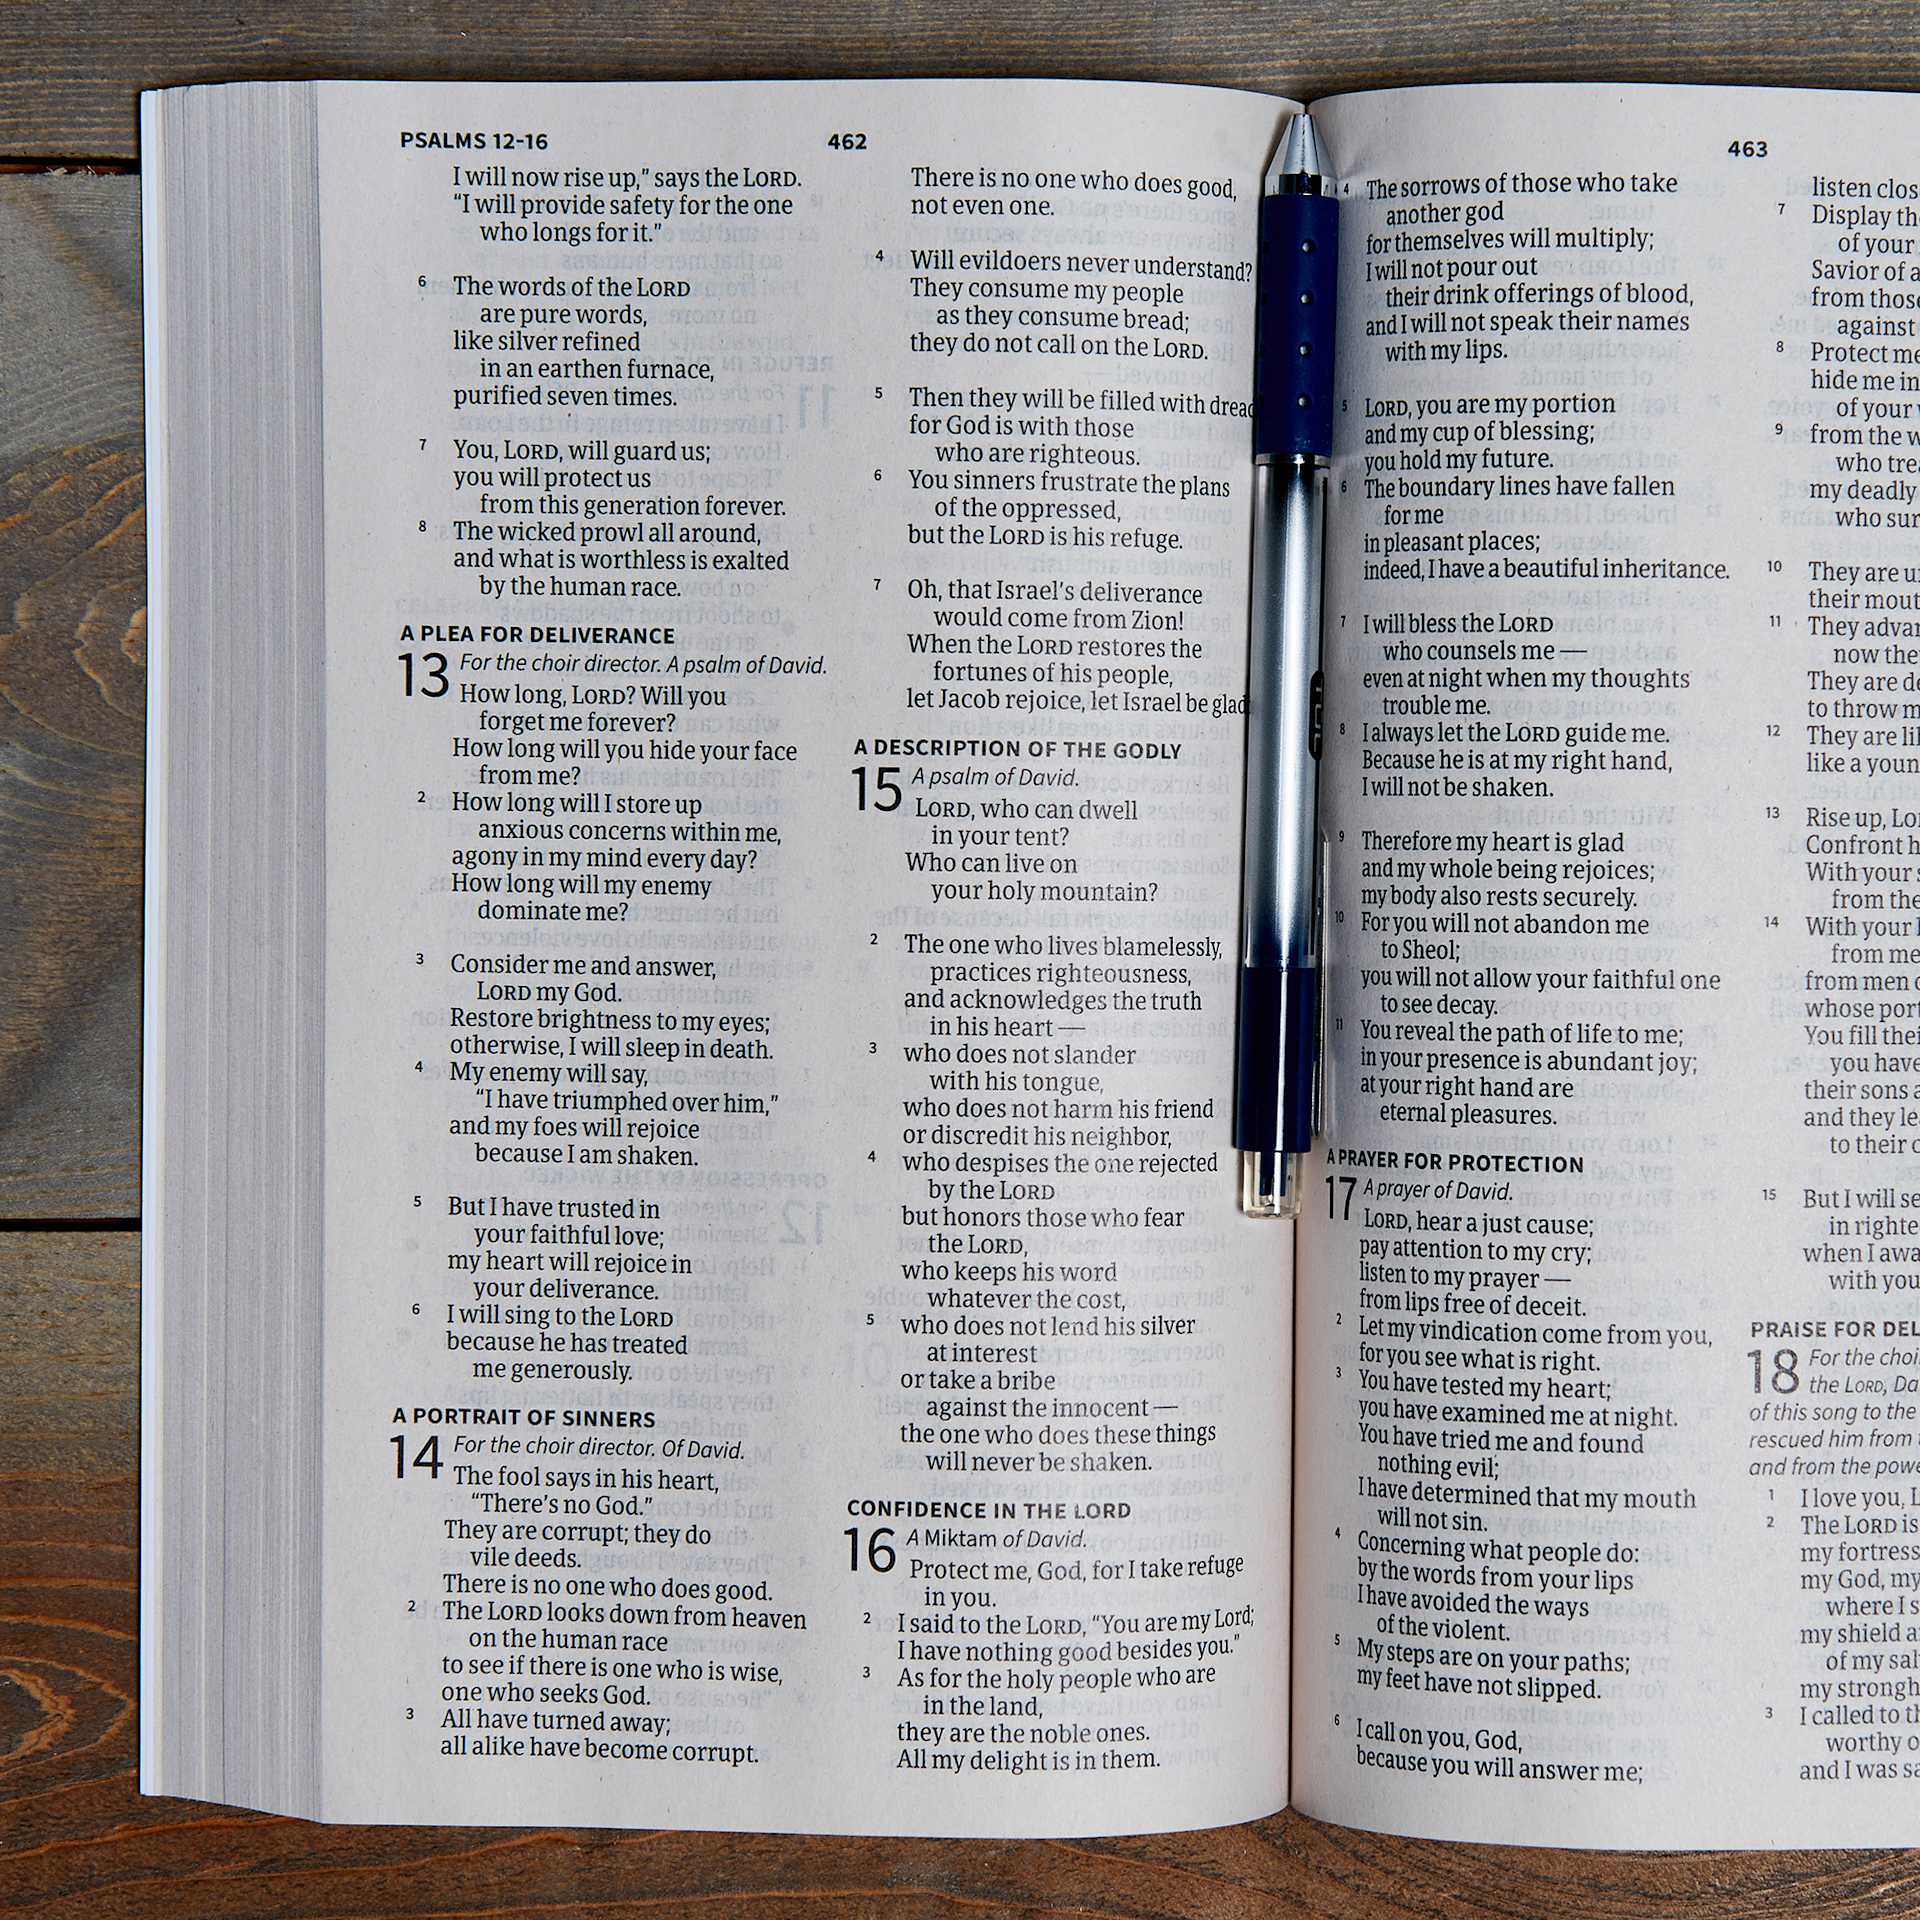 PSALMS 12-16
462
I will now rise up,” says the LORD.
“I will provide safety for the one
who longs for it.”
6 The words of the LORD
are pure words,
like silver refined
in an earthen furnace,
purified seven times.
7 You, LORD, will guard us;
you will protect us
from this generation forever.
8 The wicked prowl all around,
and what is worthless is exalted
by the human race.
A PLEA FOR DELIVERANCE
13 For the choir director. A psalm of David.
How long, LORD? Will you
forget me forever?
How long will you hide your face
from me?
2 How long will I store up
anxious concerns within me,
agony in my mind every day?
How long will my enemy
dominate me?
3 Consider me and answer,
LORD my God.
Restore brightness to my eyes;
otherwise, I will sleep in death.
4 My enemy will say,
“I have triumphed over him,”
and my foes will rejoice
because I am shaken.
5 But I have trusted in
your faithful love;
my heart will rejoice in
your deliverance.
6 I will sing to the LORD
because he has treated
me generously.
A PORTRAIT OF SINNERS
14 For the choir director. Of David.
The fool says in his heart,
“There’s no God.”
They are corrupt; they do
vile deeds.
There is no one who does good.
2 The LORD looks down from heaven
on the human race
to see if there is one who is wise,
one who seeks God.
3 All have turned away;
all alike have become corrupt.
There is no one who does good,
not even one.
4 Will evildoers never understand?
They consume my people
as they consume bread;
they do not call on the LORD.
5 Then they will be filled with dread
for God is with those
who are righteous.
6 You sinners frustrate the plans
of the oppressed,
but the LORD is his refuge.
7 Oh, that Israel’s deliverance
would come from Zion!
When the LORD restores the
fortunes of his people,
let Jacob rejoice, let Israel be glad
A DESCRIPTION OF THE GODLY
15 A psalm of David.
LORD, who can dwell
in your tent?
Who can live on
your holy mountain?
2 The one who lives blamelessly,
practices righteousness,
and acknowledges the truth
in his heart —
3 who does not slander
with his tongue,
who does not harm his friend
or discredit his neighbor,
4 who despises the one rejected
by the LORD
but honors those who fear
the LORD,
who keeps his word
whatever the cost,
5 who does not lend his silver
at interest
or take a bribe
against the innocent —
the one who does these things
will never be shaken.
CONFIDENCE IN THE LORD
16 A Miktam of David.
Protect me, God, for I take refuge
in you.
2 I said to the LORD, “You are my Lord;
I have nothing good besides you.”
3 As for the holy people who are
in the land,
they are the noble ones.
All my delight is in them.
463
4 The sorrows of those who take
another god
for themselves will multiply;
I will not pour out
their drink offerings of blood,
and I will not speak their names
with my lips.
5 LORD, you are my portion
and my cup of blessing;
you hold my future.
6 The boundary lines have fallen
for me
in pleasant places;
indeed, I have a beautiful inheritance.
7 I will bless the LORD
who counsels me —
even at night when my thoughts
trouble me.
8 I always let the LORD guide me.
Because he is at my right hand,
I will not be shaken.
9 Therefore my heart is glad
and my whole being rejoices;
my body also rests securely.
10 For you will not abandon me
to Sheol;
you will not allow your faithful one
to see decay.
11 You reveal the path of life to me;
in your presence is abundant joy;
at your right hand are
eternal pleasures.
A PRAYER FOR PROTECTION
17 A prayer of David.
LORD, hear a just cause;
pay attention to my cry;
listen to my prayer —
from lips free of deceit.
2 Let my vindication come from you,
for you see what is right.
3 You have tested my heart;
you have examined me at night.
You have tried me and found
nothing evil;
I have determined that my mouth
will not sin.
4 Concerning what people do:
by the words from your lips
I have avoided the ways
of the violent.
5 My steps are on your paths;
my feet have not slipped.
6 I call on you, God,
because you will answer me;
listen
7 Display
of your
Savior of
from those
against
8 Protect me
hide me in
of your
9 from the
who
my deadly
who
10 They are
their
11 They
now
They are
to throw
12 They are
like a
13 Rise up,
Confront
With your
from the
14 With your
from
from men
whose
You fill
you have
their sons
and they
to their
15 But I will
in
when I
with you
PRAISE FOR
18 For the
the LORD,
of this song to the
rescued him from
and from the
1 I love you,
2 The LORD is
my fortress
my God, my
where I
my shield
of my
my
3 I called to
worthy
and I was